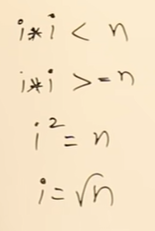 i*i < n
i*i >= n
i² = n
i = √n